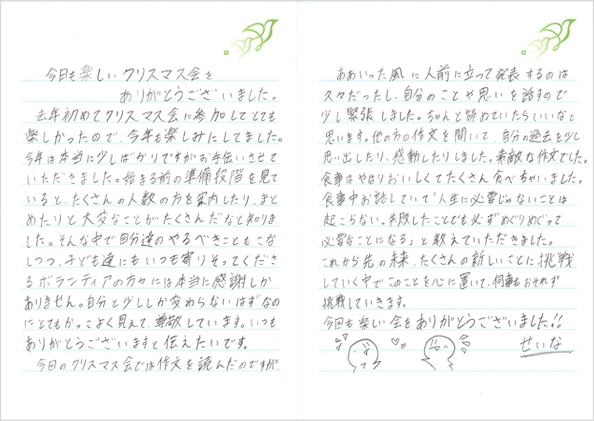 今日も楽しいクリスマス会を
ありがとうございました。
去年初めてクリスマス会に参加してとても
楽しかったので、今年も楽しみにしてました。
今年は本当に少しばかりですがお手伝いさせて
いただきました。始まる前の準備段階を見て
いると、たくさんの人数の方を案内したり、まと
めたりと大変なことがたくさんだなと知りま
した。そんな中で自分達のやるべきこともこな
しつつ、子ども達にもいつも寄りそってくださ
るボランティアの方々には本当に感謝しか
ありません。自分と少ししか変わらないはずなの
にとてもかっこよく見えて、尊敬しています。いつも
ありがとうございますと伝えたいです。
今日のクリスマス会では作文を読んだのですが、
ああいった風に人前に立って発表するのは
久々だったし、自分のことや思いを話すので
少し緊張しました。ちゃんと読めていたらいいなと
思います。他の方の作文を聞いて、自分の過去を少し
思い出したり、感動したりしました。素敵な作文でした。
食事はやはりおいしくてたくさん食べちゃいました。
食事中お話していて「人生に必要じゃないことは
起こらない。失敗したことでも必ずめぐりめぐって
必要なことになる」と教えていただきました。
これから先の未来、たくさんの新しいことに挑戦
していく中でこのことを心に置いて、何事もおそれず
挑戦していきます。
今回も楽しい会をありがとうございました!!
せいな